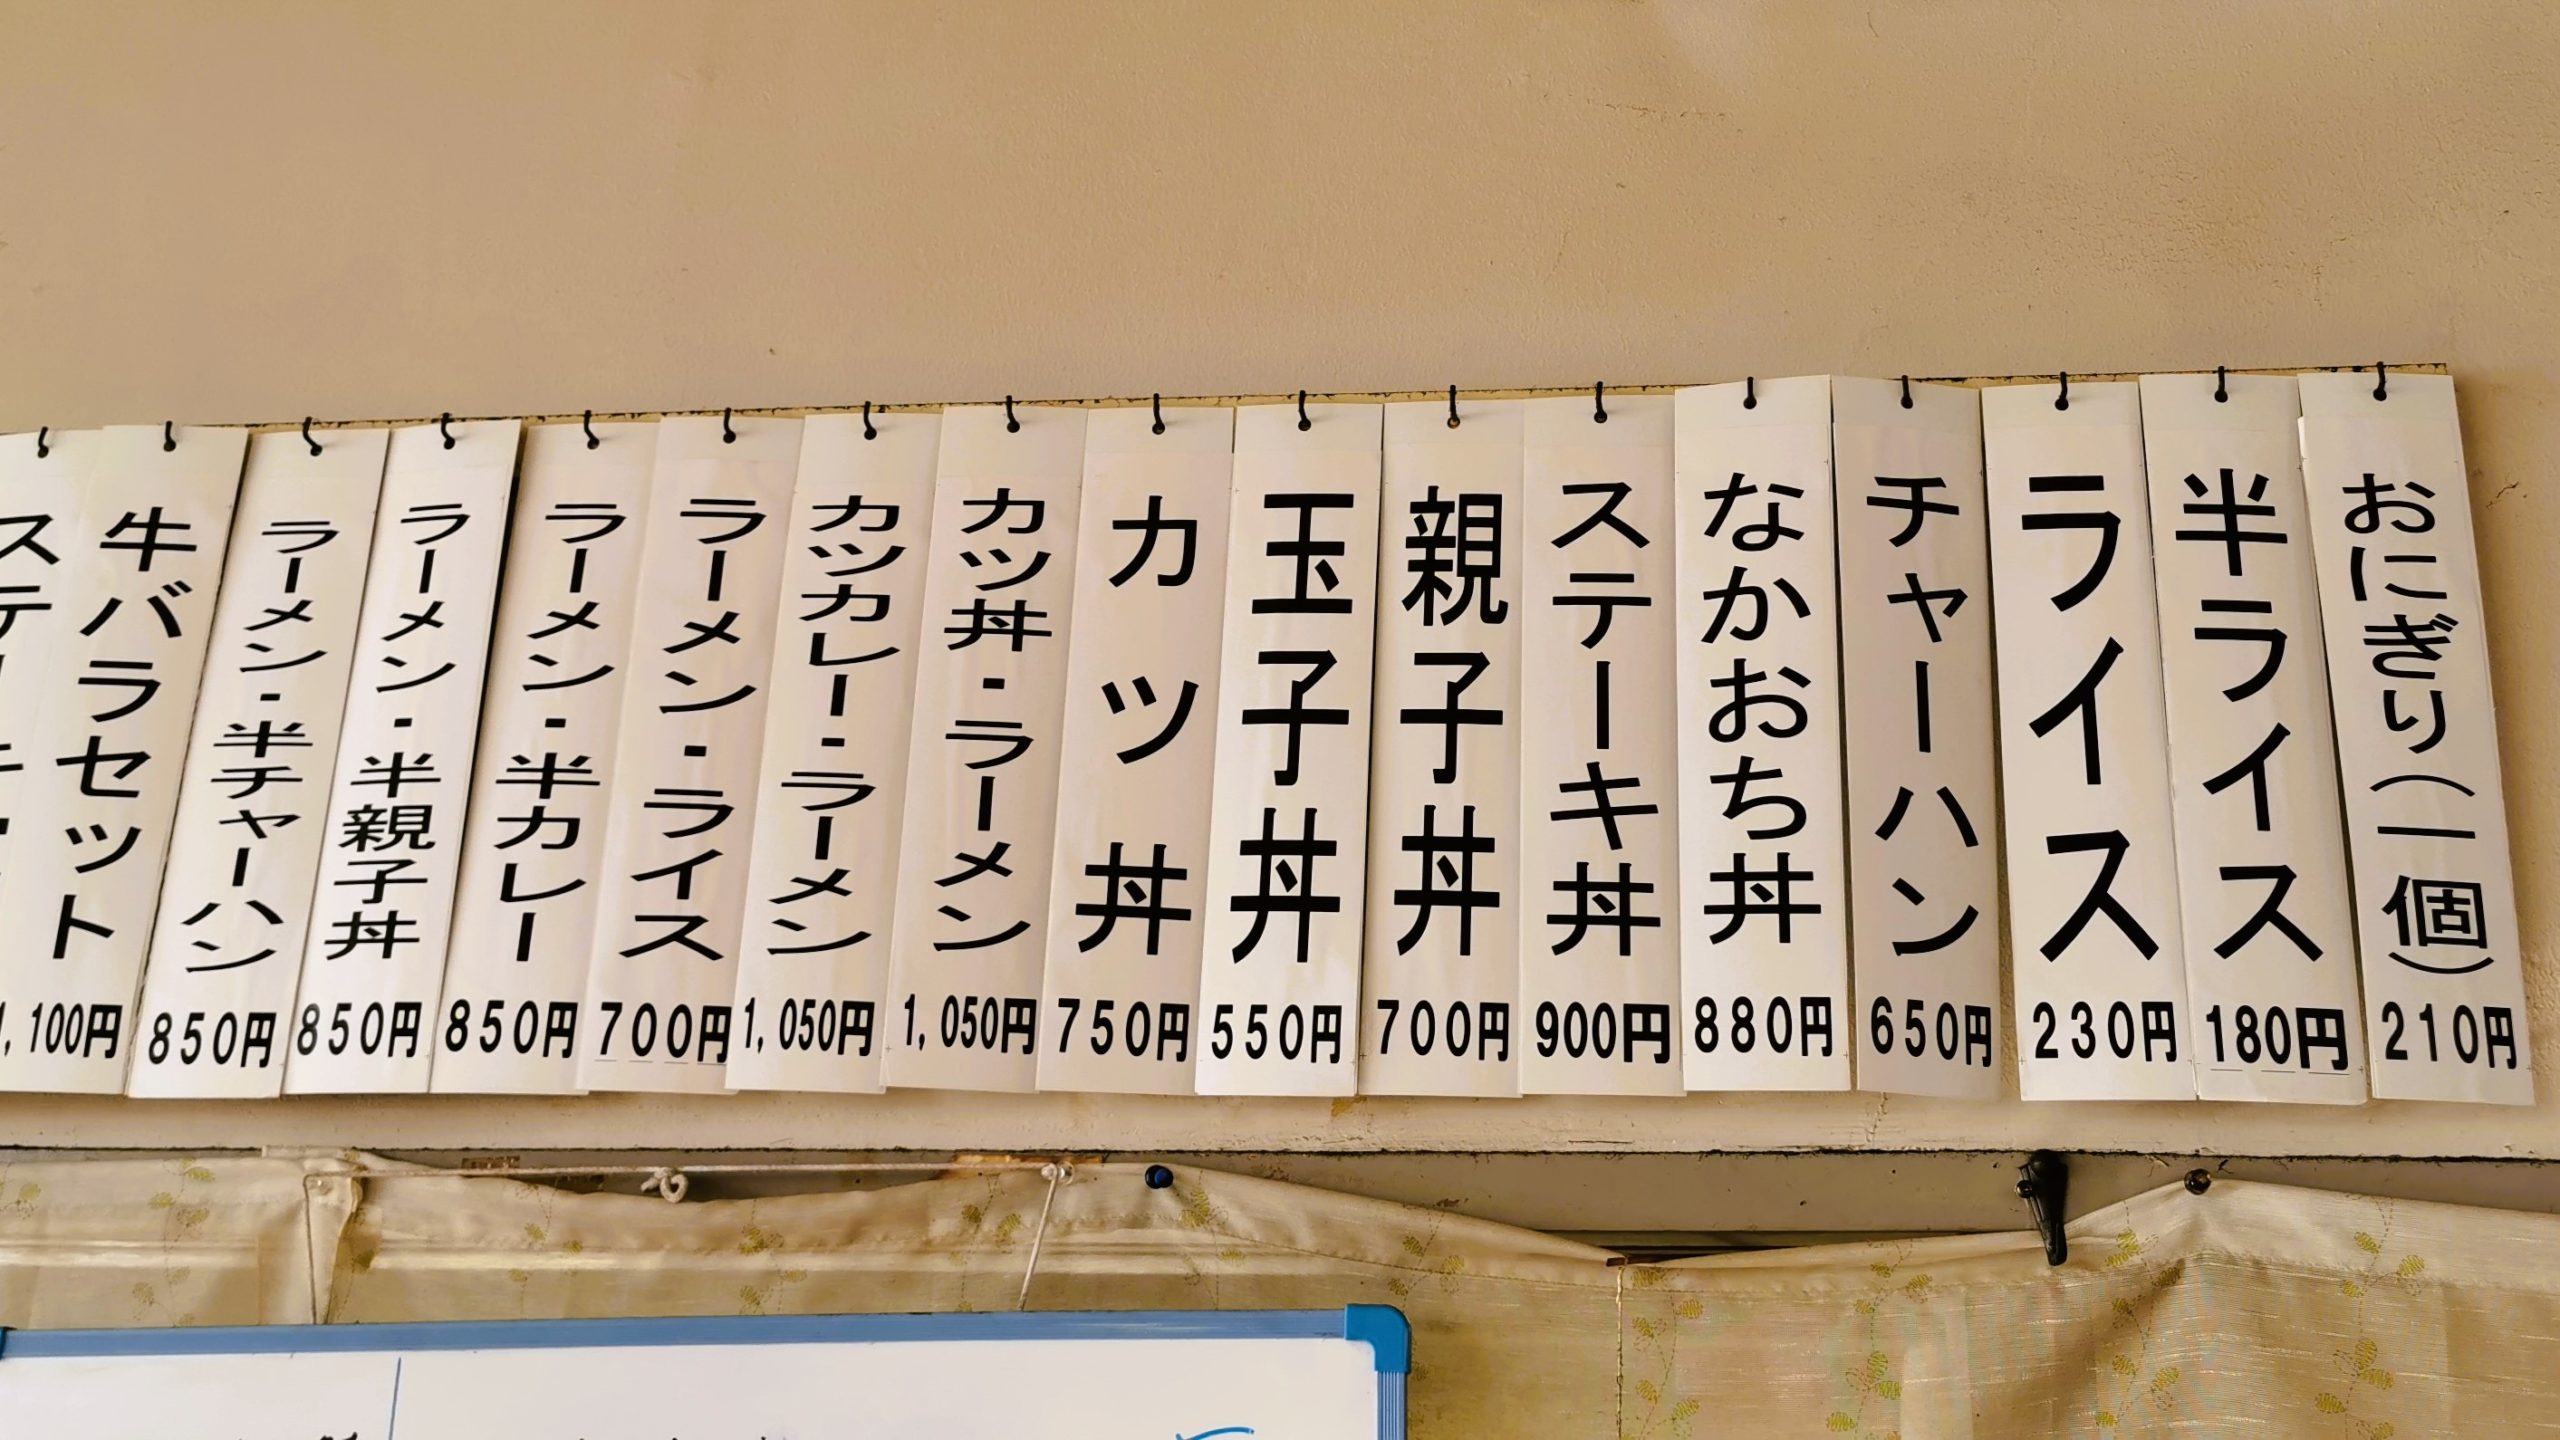 おにぎり(一個)
210円
半ライス
180円
ライス
230円
チャーハン
650円
なかおち丼
880円
ステーキ丼
900円
親子丼
700円
玉子丼
550円
カツ丼
750円
カツ丼・ラーメン
1,050円
カツカレー・ラーメン
1,050円
ラーメン・ライス
700円
ラーメン・半カレー
850円
ラーメン・半親子丼
850円
ラーメン・半チャーハン
850円
牛バラセット
1,100円